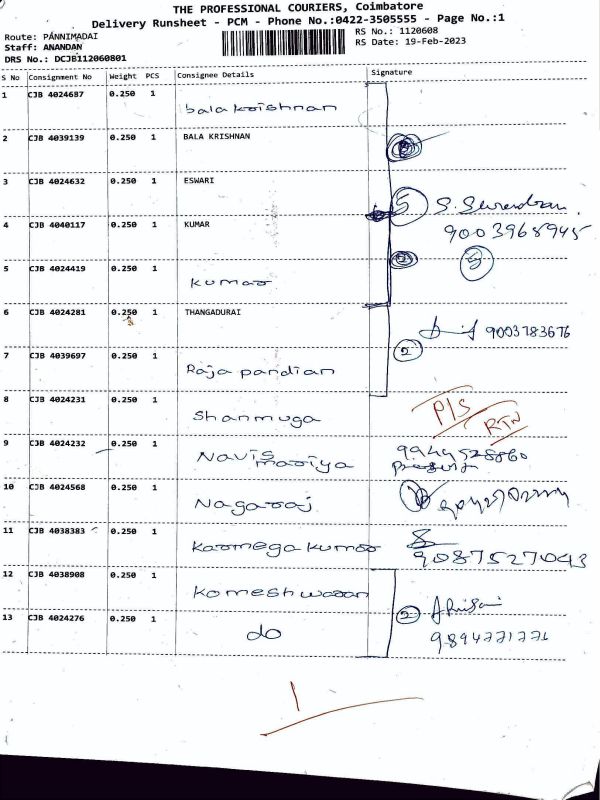 THE PROFESSIONAL COURIERS, Coimbatore
Delivery Runsheet - PCM - Phone No.:0422-3505555 - Page No.:1
Route: PANNIMADAI
RS No.: 1120608
Staff: ANANDAN
RS Date: 19-Feb-2023
DRS No.: DCJB112060801
S No Consignment No Weight PCS Consignee Details Signature
1 CJB 4024687 0.250 1 balakrishnan
2 CJB 4039139 0.250 1 BALA KRISHNAN
3 CJB 4024632 0.250 1 ESWARI 5 S. Surendran
4 CJB 4040117 0.250 1 KUMAR 9003968945
5
5 CJB 4024419 0.250 1 kumar
6 CJB 4024281 0.250 1 THANGADURAI 9003783676
7 CJB 4039697 0.250 1 Raja pandian 2
8 CJB 4024231 0.250 1 Shanmuga P/S RTN
9 CJB 4024232 0.250 1 Navis mariya 9944528860
10 CJB 4024568 0.250 1 Nagaraj
11 CJB 4038383 0.250 1 Karmega kumar 9087527043
12 CJB 4038908 0.250 1 Komeshwaran 2
13 CJB 4024276 0.250 1 do 9894771771
1